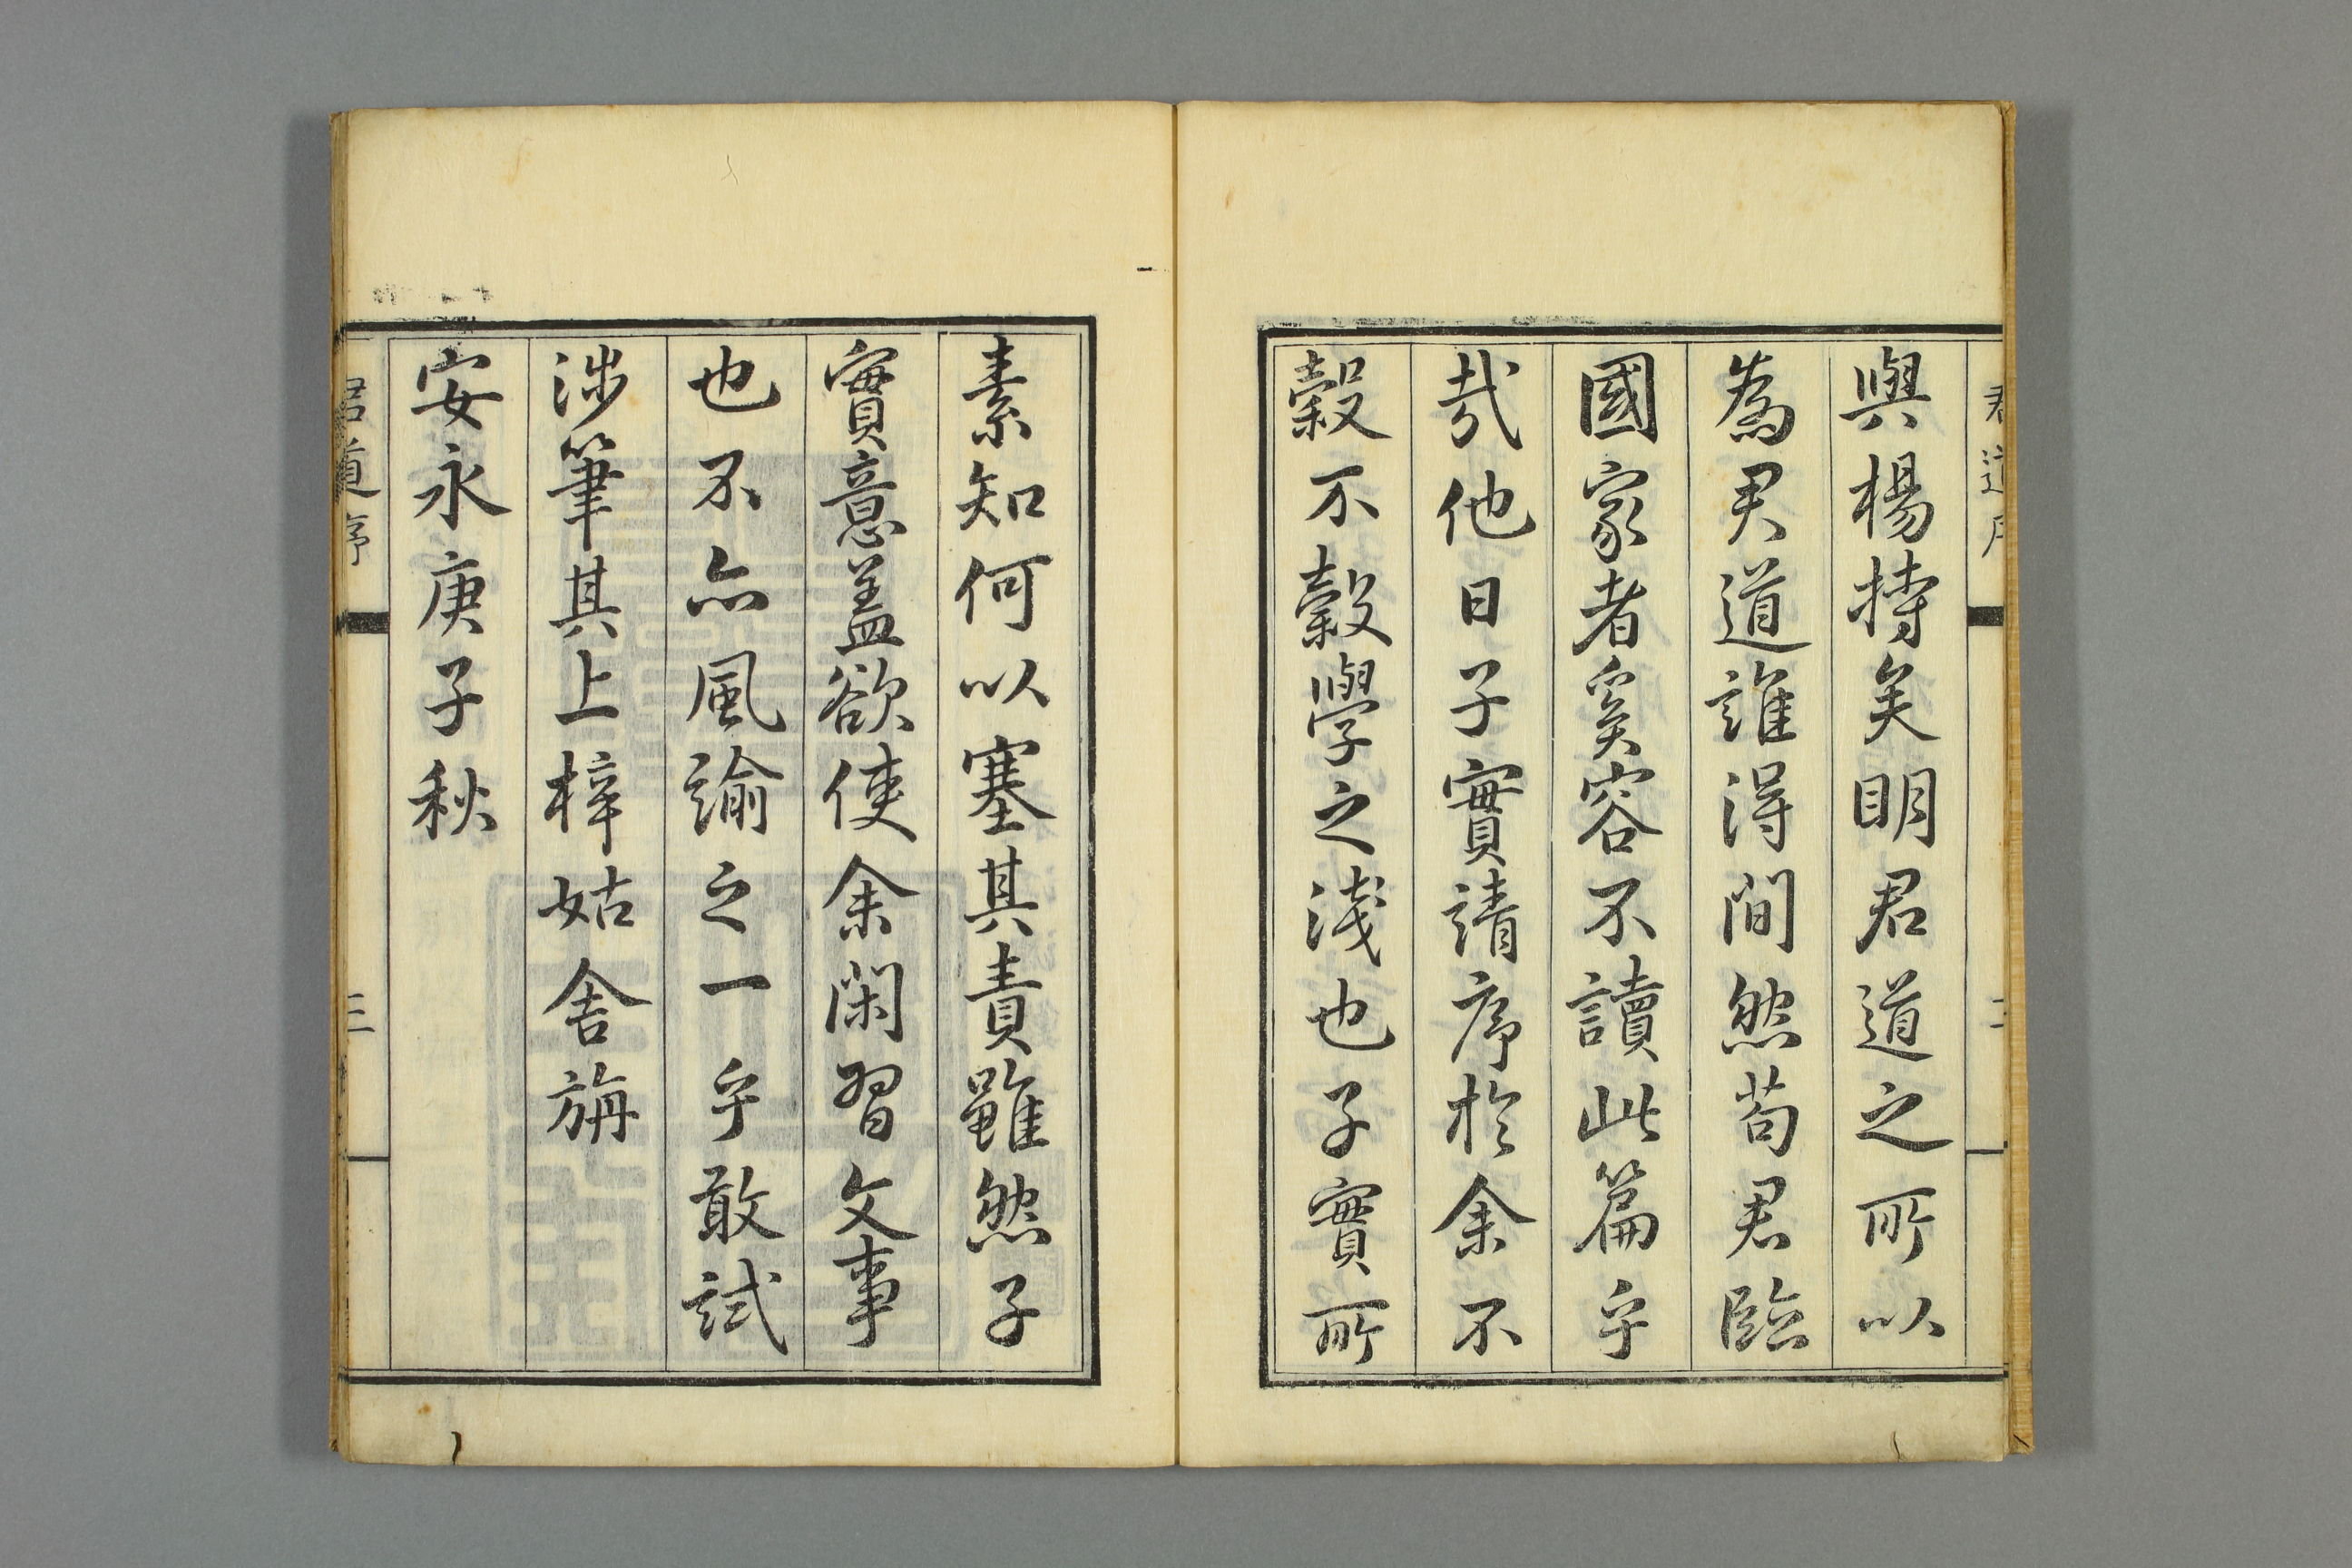 君道序
二
與楊持矣明君道之所以
為君道誰得間然苟君臨
國家者奚容不讀此篇乎
哉他日子實請序於余不
穀不穀學之淺也子實所
素知何以塞其責雖然子
實意盖欲使余閑習文事
也不亦風諭之一乎敢試
涉筆其上梓姑舍旃
安永庚子秋
君道序
三